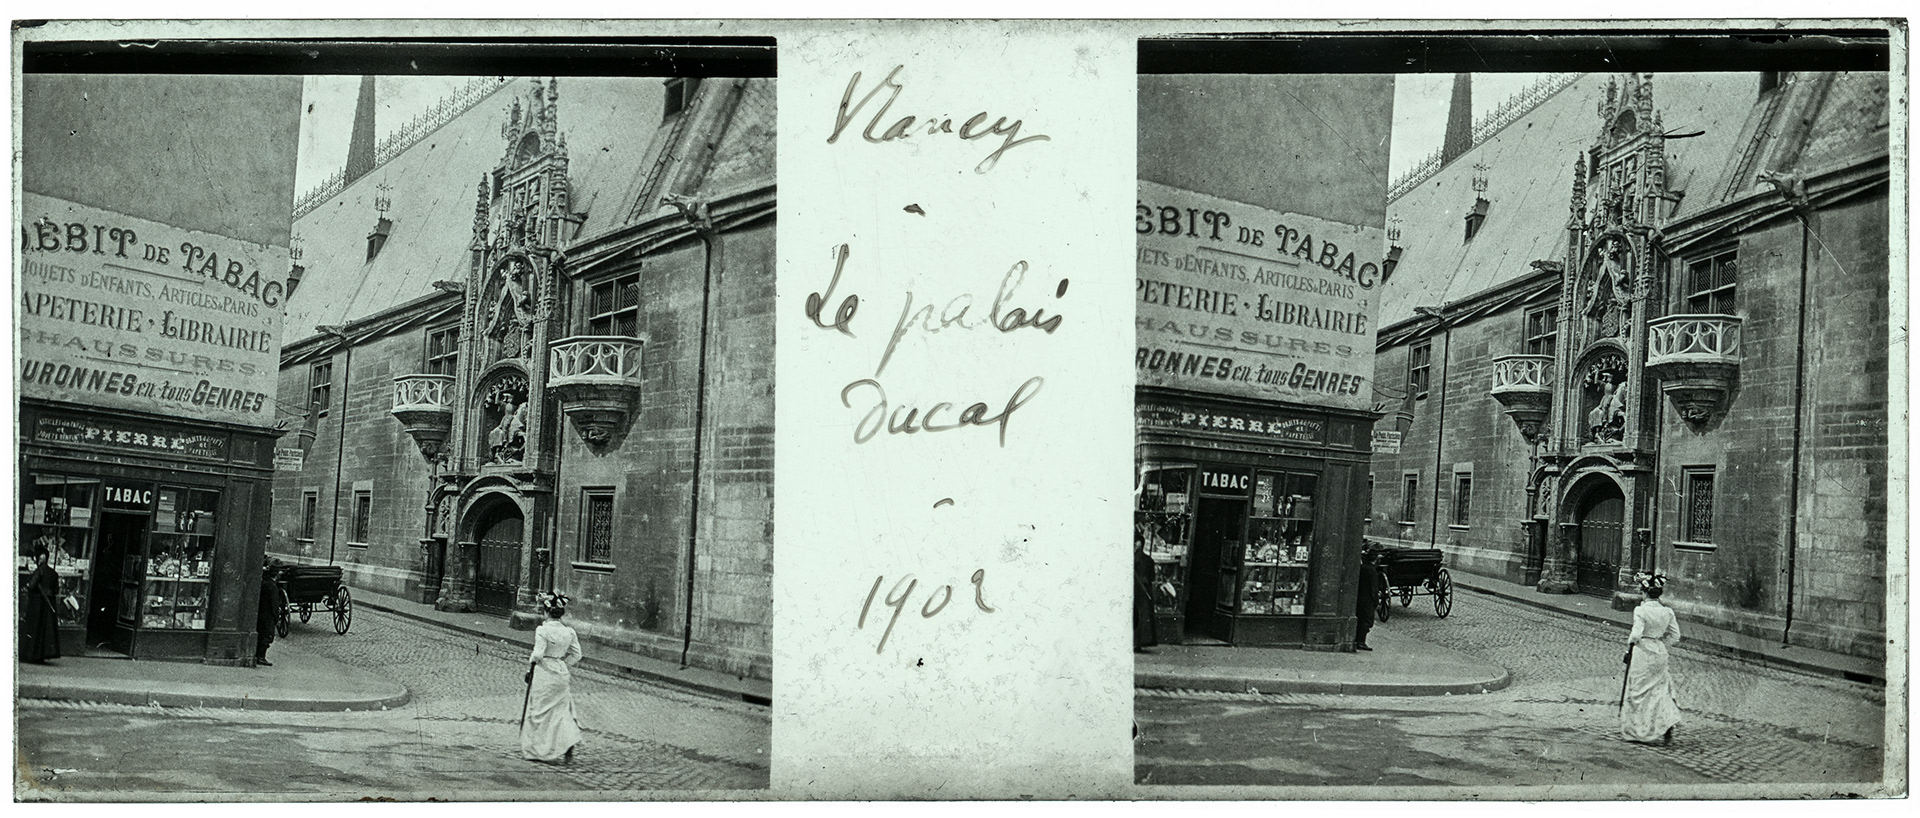 DÉBIT DE TABAC
JOUETS D'ENFANTS, ARTICLES DE PARIS
APETERIE · LIBRAIRIE
CHAUSSURES
URONNES en tous GENRES
PIERRE
TABAC
Nancy
-
Le palais
Ducal
-
1902
ÉBIT DE TABAC
ETS D'ENFANTS, ARTICLES DE PARIS
PETERIE · LIBRAIRIE
HAUSSURES
RONNES en tous GENRES
PIERRE
TABAC